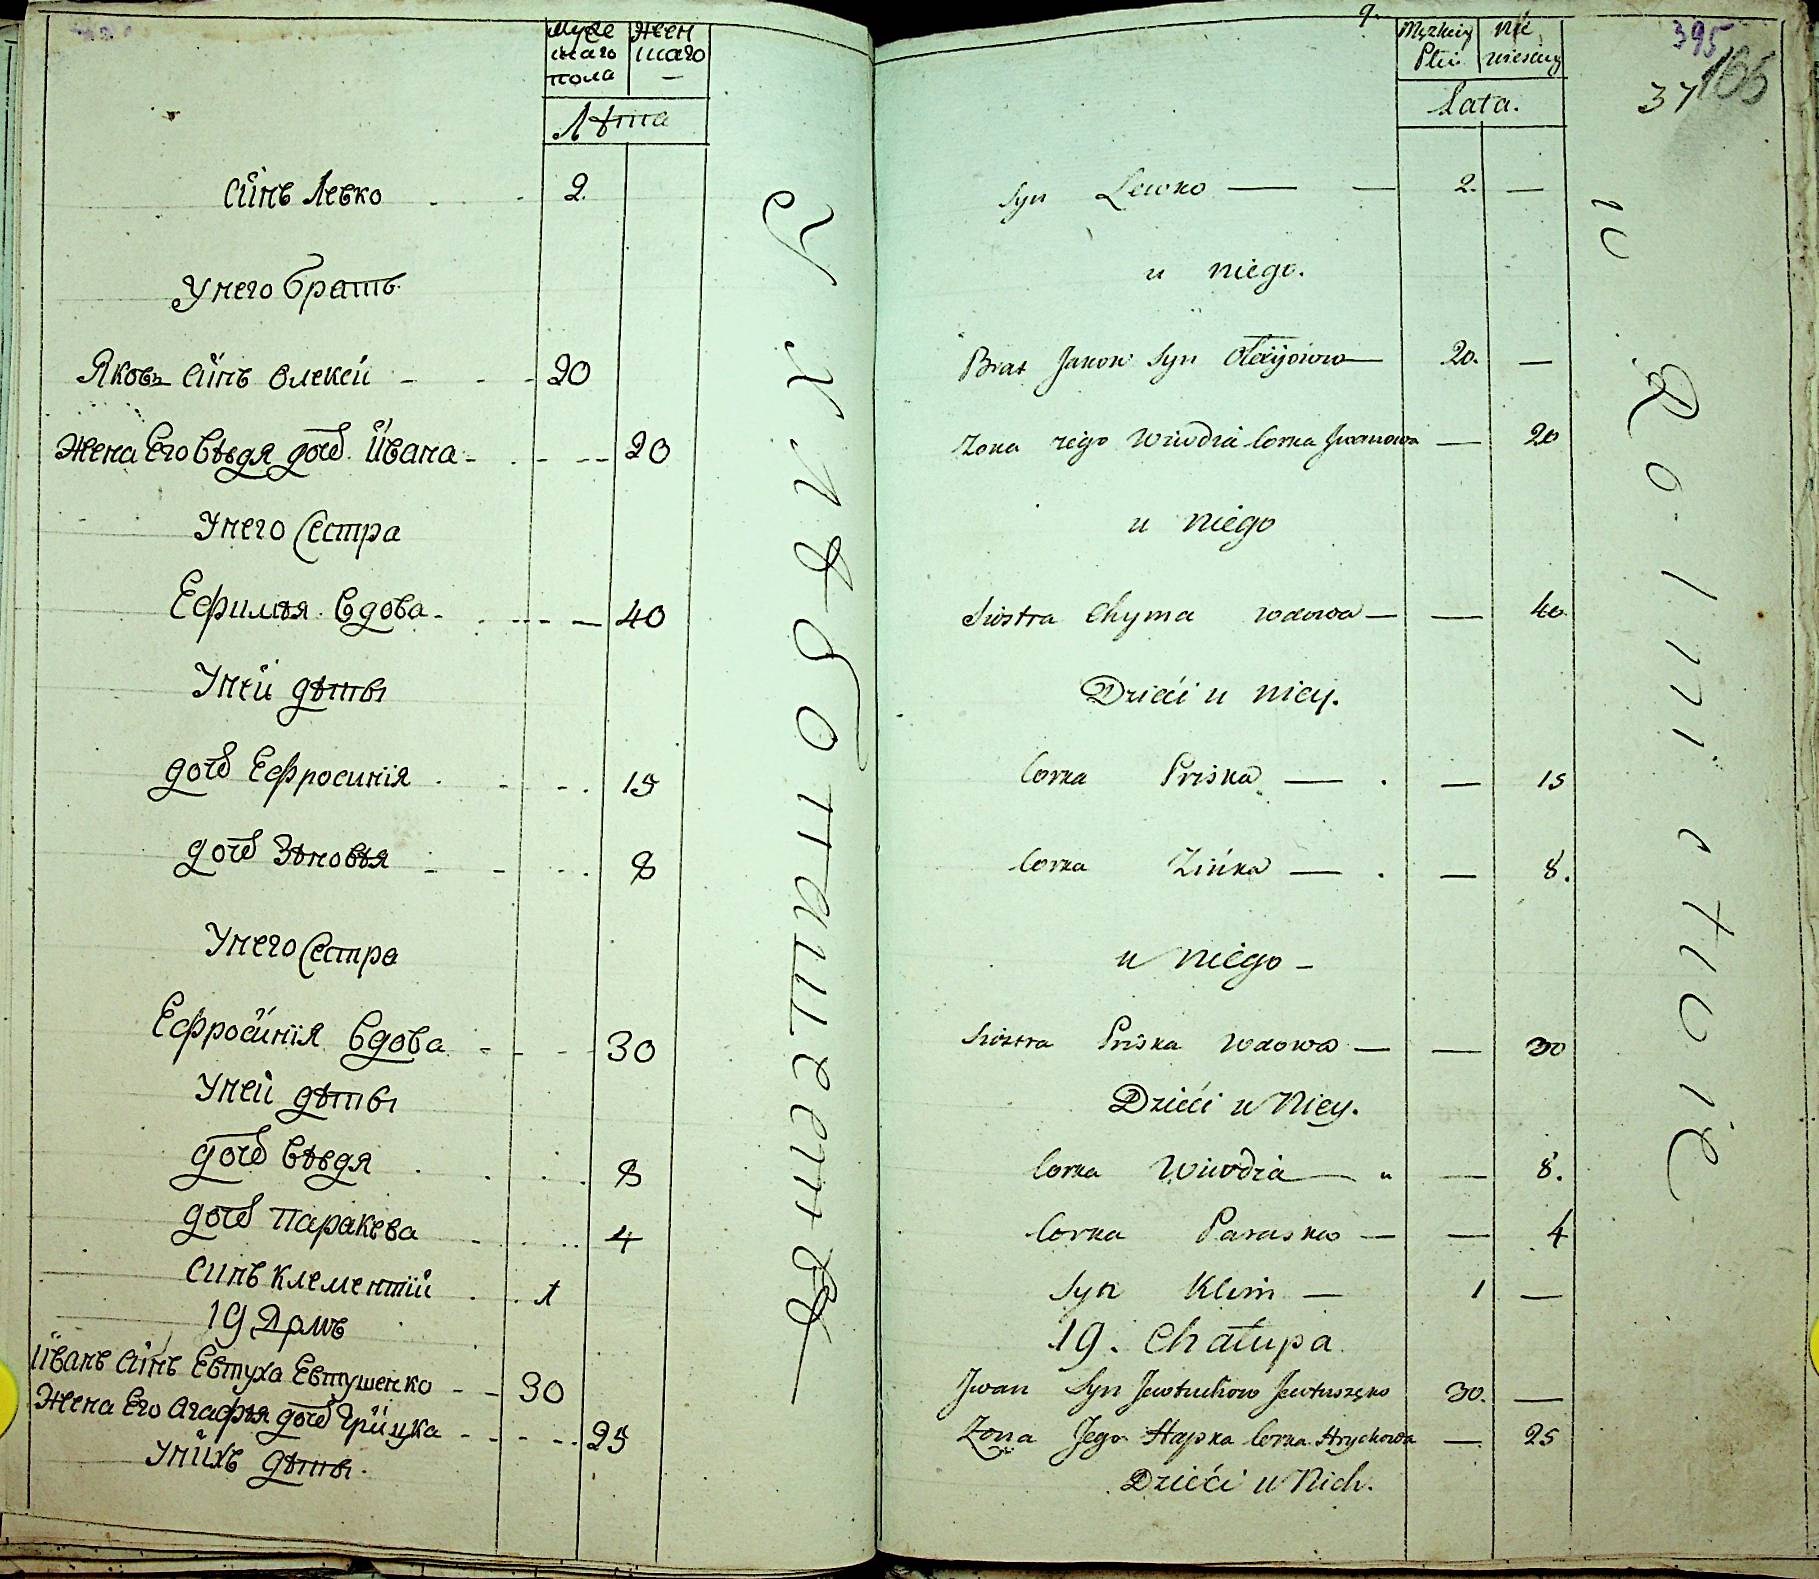 Муже Жен
скаго скаго
пола —
Лѣта
Сїнъ Левко 2.
У него братъ
Яковъ сїнъ Олексїй 20
Жена Его Вѣвдя дочь Ївана 20
У него Сестра
Ефимѣя Вдова 40
У неї дѣты
дочь Ефросинїя 15
дочь Зѣновѣя 8
У него Сестра
Ефросїнїя Вдова 30
У неї дѣты
дочь Вѣвдя 8
дочь Паракева 4
Синъ Клементїй 1
19 Домъ
Їванъ сїнъ Евтуха Евтушенко 30
Жена Его Агафѣя дочь Грїцка 25
У нїхъ дѣты.
9.
Męzkiey Nie
Płci wiesciey
Lata.
395
166
37
Syn Lewko — — 2. —
u niego.
Brat Jakow Syn Olexijowow — 20. —
Zona iego Wiwdia Corka Jwanowa — 20
u niego
Siostra Chyma wdowa — — 40.
Dzieći u niey.
Corka Priska — . — 15
Corka Zińka — . — 8.
u niego —
Siostra Priska wdowa — — 30
Dzieći u Niey.
Corka Wiwdia — — 8.
Corka Paraska — — 4
Syn Klim — 1 —
19. Chałupa
Jwan Syn Jewtuchow Jewtuszęko 30. —
Zona Jego Hapka Corka Hrychowa — 25
Dzieći u Nich.